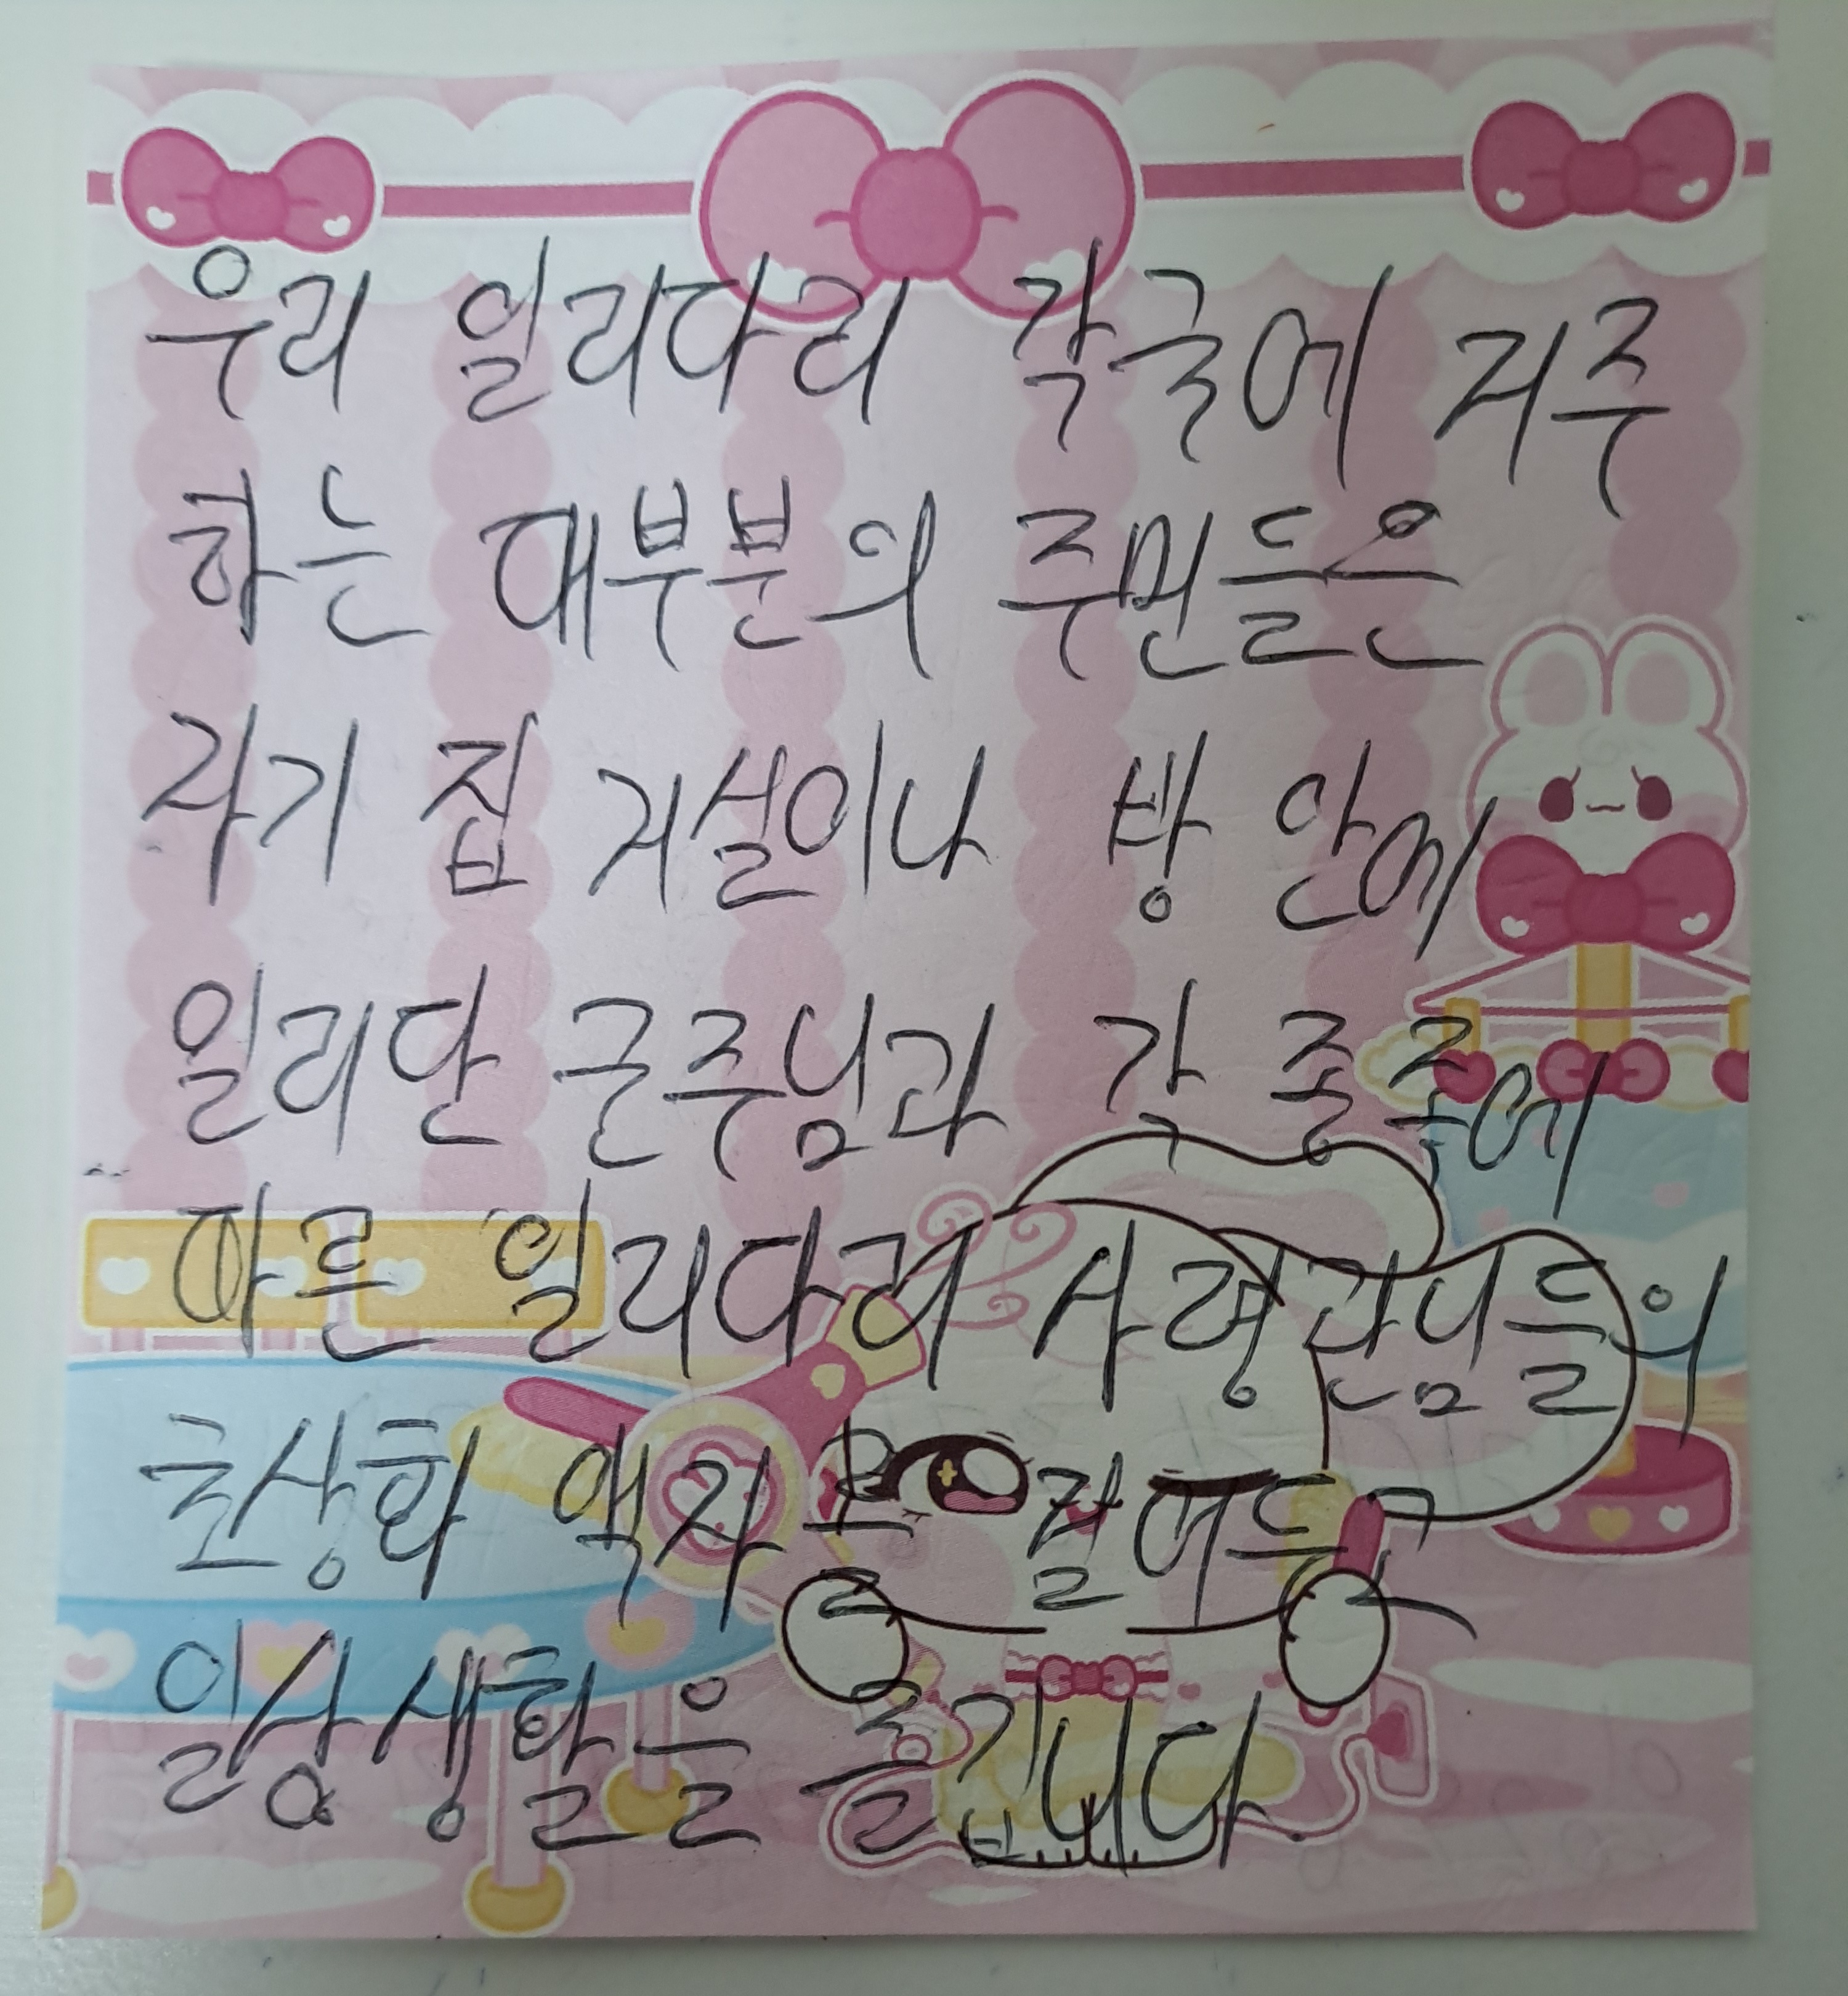 우리 일리다리 각국에 거주
하는 대부분의 주민들은
자기 집 거실이나 방 안에
일리단 군주님과 각 종족에
따른 일리다리 사령관님들의
초상화 액자를 걸어두고
일상생활을 즐깁니다.